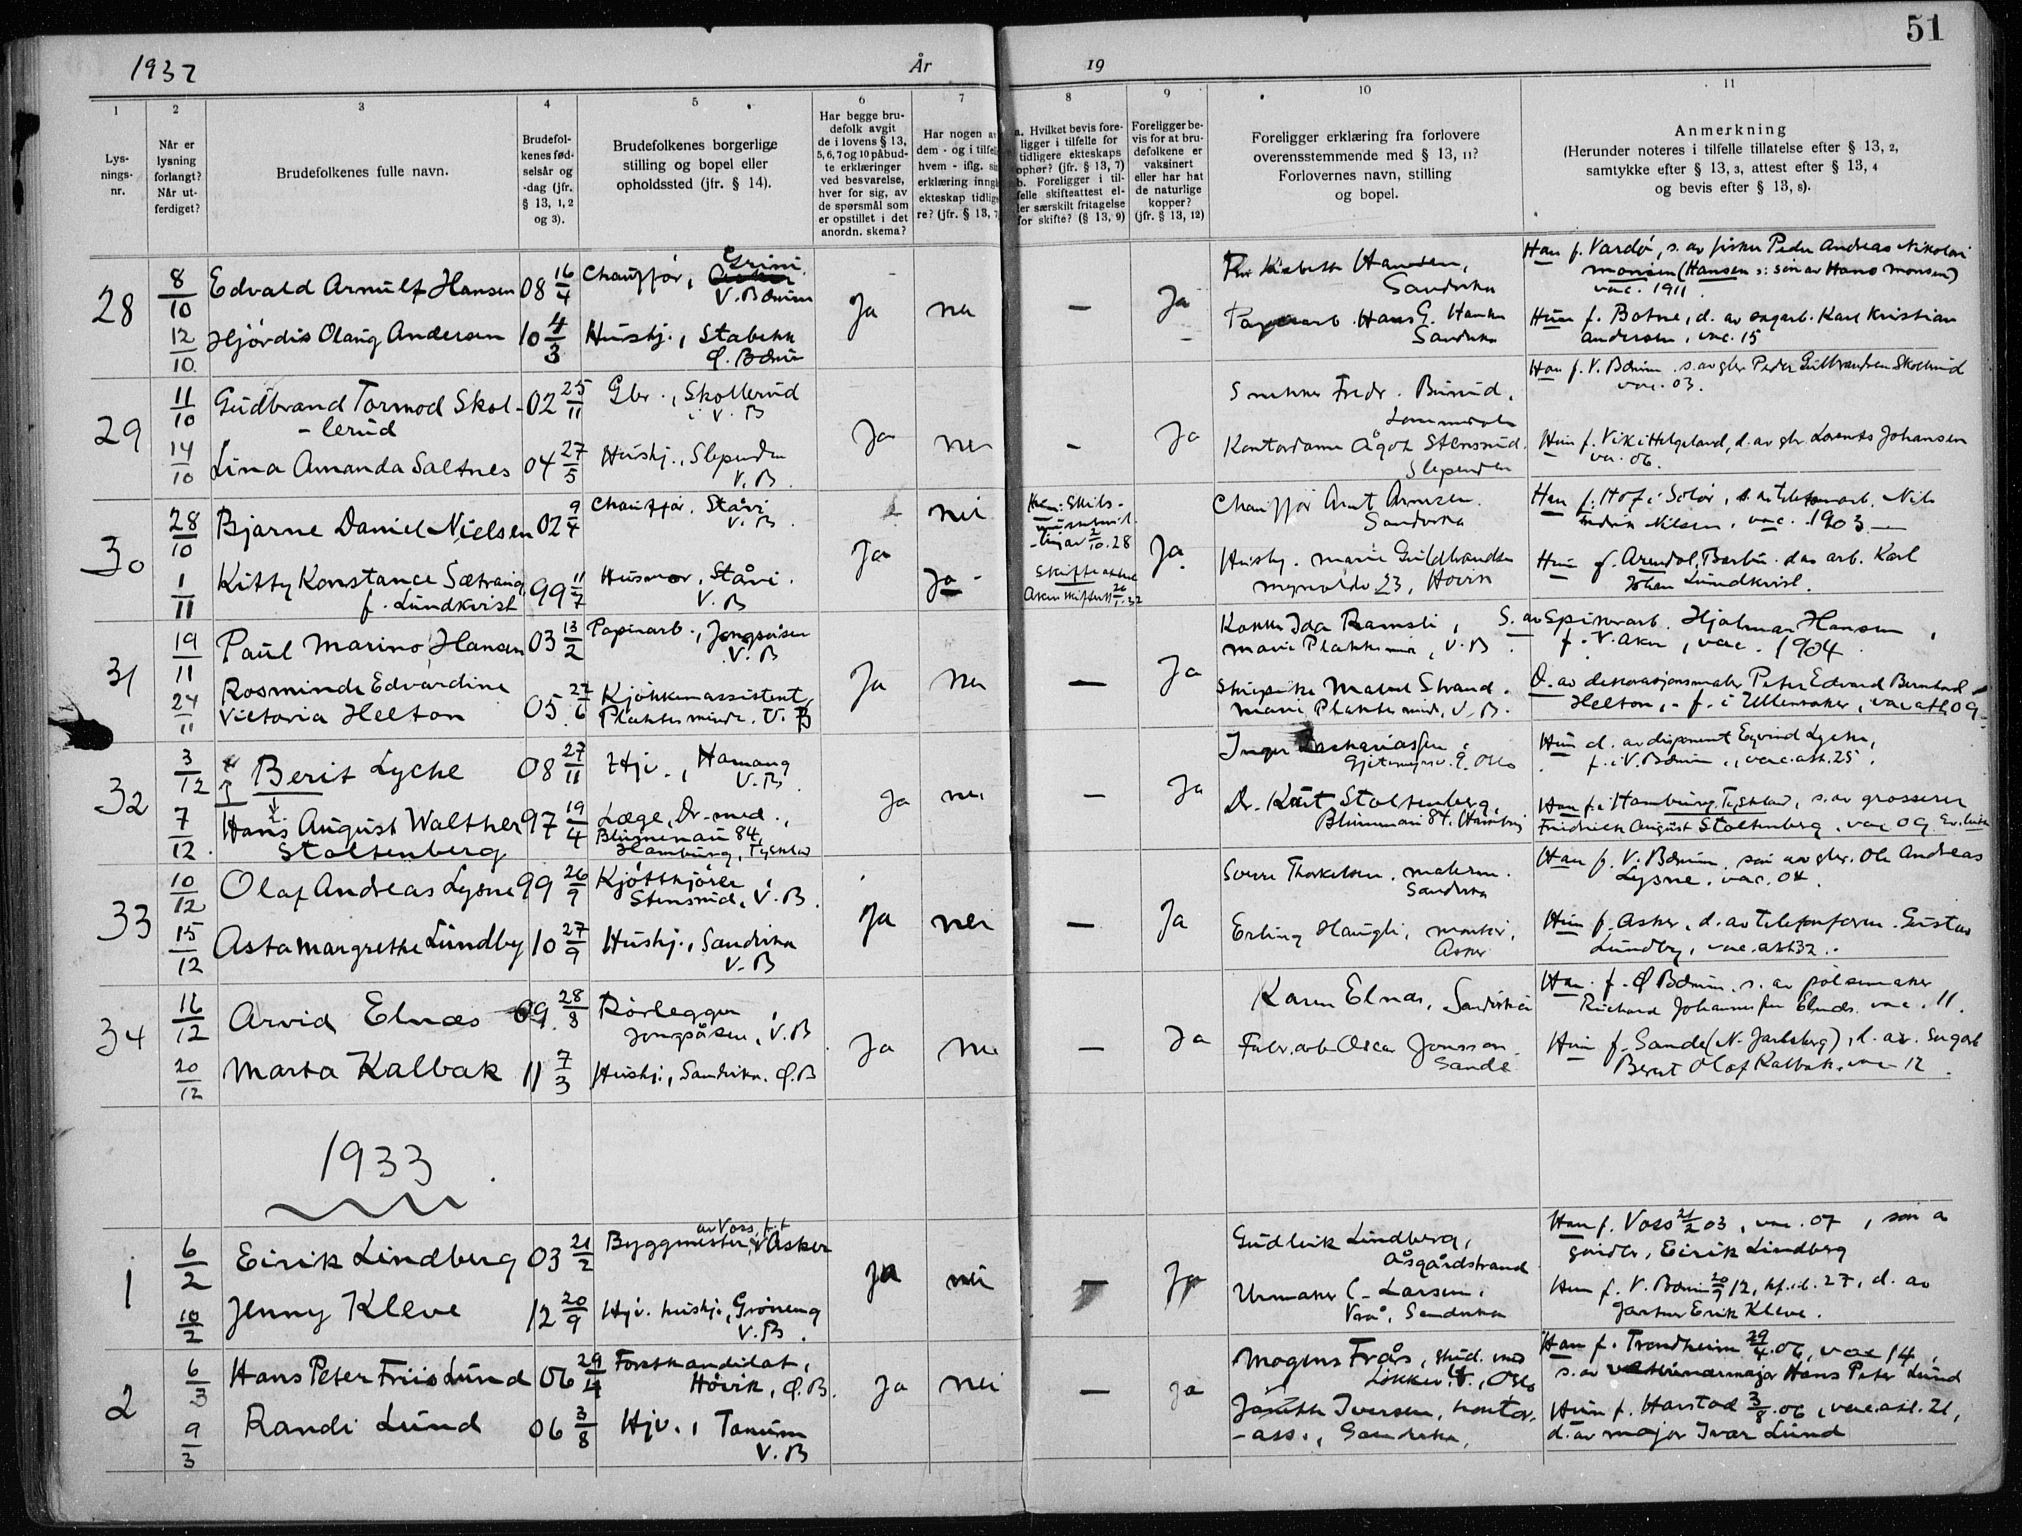 51
1932
År
19
1
2
3
4
5
6
7
8
9
10
11
Lys-
nings-
nr.
Når er
lysning
forlangt?
Når ut-
ferdiget?
Brudefolkenes fulle navn.
Brudefol-
kenes fød-
selsår og
-dag (jfr.
§ 13, 1, 2
og 3).
Brudefolkenes borgerlige
stilling og bopel eller
opholdssted (jfr. § 14).
Har begge bru-
defolk avgit
de i lovens § 13,
5, 6, 7 og 10 påbud-
te erklæringer
ved besvarelse,
hver for sig, av
de spørsmål som
er opstillet i det
anordn. skema?
Har nogen a
dem - og i tilfel
hvem - iflg. si
erklæring inng
ekteskap tidlig
re? (jfr. § 13, 7
a. Hvilket bevis fore-
ligger i tilfelle for
tidligere ekteskaps
ophør? (jfr. § 13, 7)
b. Foreligger i til-
felle skifteattest el-
ler særskilt fritagelse
for skifte? (§ 13, 9)
Foreligger be-
vis for at bru-
defolkene er
vaksinert
eller har hat
de naturlige
kopper?
(jfr. § 13, 12)
Foreligger erklæring fra forlovere
overensstemmende med § 13, 11?
Forlovernes navn, stilling
og bopel.
Anmerkning
(Herunder noteres i tilfelle tillatelse efter § 13, 2,
samtykke efter § 13, 3, attest efter § 13, 4
og bevis efter § 13, 8).
28
8/10
Edvald Arnulf Hansen
08 16/4
Chauffør, Grini
V. Bærum
Ja
nei
—
Ja
Hansen,
Sandvika
Han f. Vardø, s. av fisker Peder Andreas Nikolai
Monsen (Hansen s: søn av Hans Monsen)
vac. 1911.
12/10
Hjørdis Olaug Andersen
10 4/3
Hushj., Stabekk
Ø. Bærum
Hans G. Hansen
Sandvika
Hun f. Botne, d. av sagarb. Karl Kristian
Andersen, vac. 15
29
11/10
Gudbrand Tormod Skol-
-lerud
02 25/11
Gbr., Skollerud
i V. B
Ja
nei
—
Ja
Snekker Fredr. Burud,
Lommedalen
Han f. V. Bærum. s. av gbr Peder Gulbrandsen Skollerud
vac. 03.
14/10
Lina Amanda Saltnes
04 27/5
Hushj., Slependen
V. B.
Kontordame Ågot Stensrud.
Slependen
Hun f. Vik i Helgeland, d. av gbr. Lorents Johansen
vac. 06.
30
28/10
Bjarne Daniel Nielsen
02 9/4
Chauffør. Ståvi
V. B.
Ja
nei
Ja
Chauffør Arnt Arnesen.
Sandvika
Han f. Hof i Solør, s. av Nils
Nilsen, vac. 1903 —
1/11
Kitty Konstance Sætrang
f. Lundkvist
99 11/7
Husmor, Ståvi.
V. B
Ja -
Skifteattest
Hushj. Marie Guldbrandsen
23, Hovin
Hun f. Arendal, d. av arb. Karl
Johan Lundkvist.
31
19/11
Paul Marino Hansen
03 13/2
Papirarb., Jongsåsen
V. B
Ja
nei
—
Ja
Kokke Ida Ramsli,
Marie Plahtes minde, V. B.
S. av Spiserarb. Hjalmar Hansen,
f. V. Aker, vac. 1904.
24/11
Rosminde Edvardine
Victoria Helton
05 27/6
Kjøkkenassistent
Plahtes minde. V. B
Strand.
Marie Plahtes minde, V. B.
D. av dekorasjonsmaler Peter Edvard Bernhard
Helton, - f. i Ullensaker, vac att. 09.
32
3/12
Berit Lyche
08 27/11
Hjv., Hamang
V. B.
Ja
nei
—
Ja
Inger Zachariassen,
Gjetemyrsv. 9. Oslo
Hun d. av disponent Eyvind Lyche,
f. i V. Bærum., vac. att. 25.
7/12.
Hans August Walther
Stoltenberg
97 19/4
Læge, Dr. med.,
Blumenau 84,
Hamburg, Tyskland
Dr. Kurt Stoltenberg,
Blumenau 84. Hamburg
Han f. i Hamburg, Tyskland, s. av grosserer
Friedrich August Stoltenberg, vac 09 Ev. luth
33
10/12
Olaf Andreas Lysne
99 26/9
Kjøttkjører,
Stensrud, V. B.
Ja
nei
—
Ja
Sverre Thorkelsen, malerm.
Sandvika
Han f. V. Bærum. søn av gbr. Ole Andreas
Lysne, vac. 04.
15/12
Asta Margrethe Lundby
10 27/9
Hushj., Sandvika
V. B
Erling Haugli, montør,
Asker
Hun f. Asker, d. av telefonform. Gustav
Lundby, vac. att 32.
34
16/12
Arvid Elnæs
09. 28/8
Rørlegger,
Jongsåsen, V. B
Ja
nei
—
Ja
Karen Elnæs, Sandvika
Han f. Ø Bærum, s. av pølsemaker
Richard Johannessen Elnæs vac. 11.
20/12
Marta Kalbak
11 7/3
Hushj., Sandvika. Ø. B
Fabr. arb. Oscar Jonsson.
Sande
Hun f. Sande (N. Jarlsberg), d. av. Sagarb
Bernt Olaf Kalbak. vac 12.
1933
1
6/2
Eirik Lindberg
03 21/2
av Voss, f. t
Byggmester, Asker
Ja
nei
—
Ja
Gudleik Lindberg,
Åsgårdstrand
Han f. Voss 21/2 03, vac. 07, søn a
gårdbr, Eirik Lindberg
10/2
Jenny Kleve
12 20/9
Hjv. hushj., Grøneng
V. B.
Urmaker C. Larsen,
Sandvika
Hun f. V. Bærum 20/9 12, kf. i d. 27, d. av
Gartner Erik Kleve.
2
6/3
Hans Peter Friis Lund
06 29/4
Forstkandidat,
Høvik, Ø. B.
Ja
nei
—
Ja
Mogens Frås, stud. med
Oslo
Han f. Trondheim 29/4.06, vac 14,
s. av veterinærmajor Hans Peter Lund
9/3
Randi Lund
06 3/8
Hjv., Tanum
V. B
Iversen, kontor-
-ass., Sandvika,
Hun f. Harstad 3/8.06, vac. att. 21,
d. av major Ivar Lund